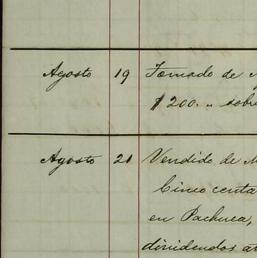 Agosto 19 Tomado de
$200.. sobre
Agosto 21 Vendido de
Cinco centa
en Pachuca,
dividendos